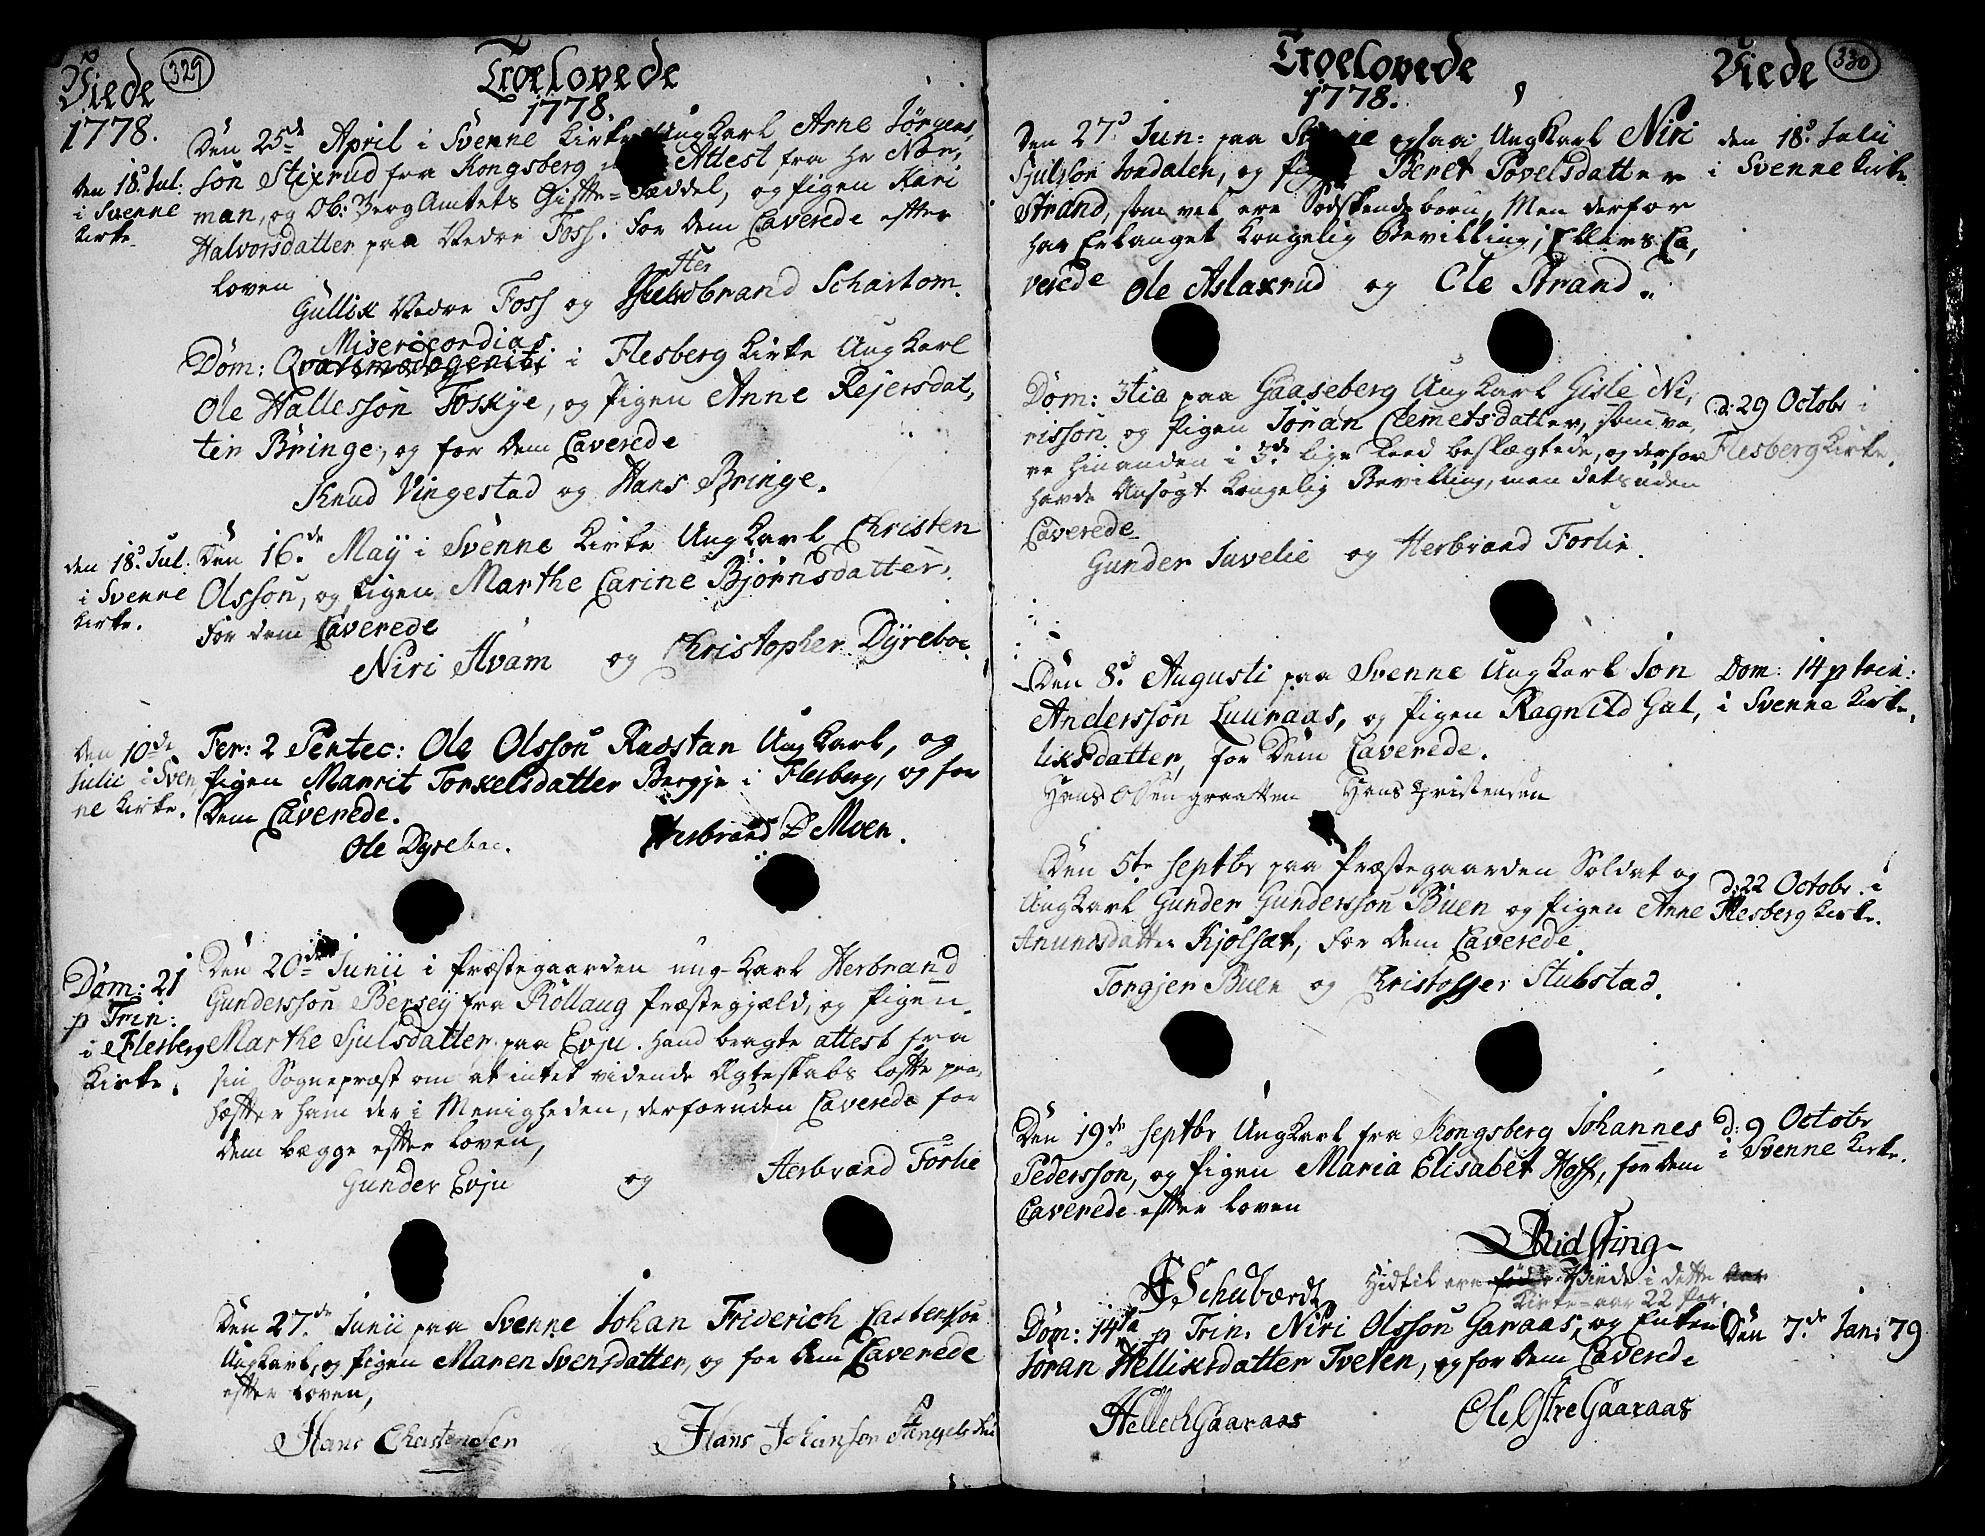 329
Viede
1778.
Troelovede
1778.
Den 25de April i Svenne Kirke UngKarl Arne Jörgens,
den 18d Jul:
i Svenne
Kirke.
sön Stixrud fra Kongsberg Attest fra Hr Nor,
man, og Ob: Berg Amtets Gifte=Sæddel, og Pigen Kari
Halvorsdatter paa Nedre Foss. For dem Caverede efter
Loven
Güllix Nedre Foss og Her brand Schartom.
Misericordias
Dom: Qvasimodogeniti i Flesberg Kirke UngKarl
Ole Hallessön Toskje, og Pigen Anne Rejersdat,
ter Bringe, og for dem Caverede
Knud Vingestad og Hans Bringe.
den 18d Jul:
i Svenne
Kirke.
Den 16de Maÿ i Svenne Kirke UngKarl Christen
Olssön, og Pigen Marthe Carine Bjørnsdatter,
for dem Caverede
Niri Hvam og Christopher Dÿreboe.
Den 10de
Julii i Sven
ne Kirke.
Fer: 2 Pentec: Ole Olssön Rudstan UngKarl, og
Pigen Marrit Torkelsdatter Bergje i Flesberg, og for
dem Caverede.
Ole Dyreboe. Herbrand D Moen.
Dom: 21
p Trin:
i Flesberg
Kirke.
Den 20de Junii i Præstegaarden ung-Karl Herbrand
Gunderssön Berseÿ fra Röllaug Præstegjæld, og Pigen
Marthe Siulsdatter paa Evju. Hand bragte attest fra
sin Sognepræst om at intet vidende Ægteskabs Løfte paa,
hæfter ham der i Menigheden, derforuden Caverede for
dem begge efter Loven,
Gunder Evju og Herbrand Forlie
Den 27de Junii paa Svenne Johan Friderich Carlenssön
UngKarl, og Pigen Maren Svensdatter, og for dem Caverede
efter Loven,
Hans Christensen Hans Johansen
330
Troelovede
1778.
Viede
Den 27d Jun: paa Svenne ogsaa UngKarl Niri
Sjulssön Jondalen, og Pigen Beret Povelsdatter
Strand, som vel ere Södskendebørn, Men derfor
har Erlanget Kongelig Bevilling; Ellers Ca,
verede Ole Aslaxrud og Ole Strand.
den 18d Julii
i Svenne Kirke
Dom: 3tia paa Gaaseberg UngKarl Gisle Ni,
rissön og Pigen Jöran Clemetsdatter, som va,
re hinanden i 3de lige Leed beslægtede, og derfor
havde Ansögt Kongelig Bevilling, men dets uden
Caverede
Gunder Juvelie og Herbrand Forlie.
d: 29 Octobr i
Flesberg Kirke.
Den 8d Augusti paa Svenne UngKarl Jon
Anderssön Luuraas, og Pigen Ragnild Gul,
lixsdatter, for dem Caverede.
Hans Olsen graatten Hans Christensen
Dom: 14 p trin:
i Svenne Kirke.
Den 5te Septbr paa Præstegaarden Soldat og
UngKarl Gunder Gunderssön Buen og Pigen Anne
Anundsdatter Kjölsæt, for dem Caverede.
Torgjer Buen og Christoffer Stubstad.
d: 22 Octobr. i
Flesberg Kirke.
Den 19de Septbr UngKarl fra Kongsberg Johannes
Pederssön, og Pigen Maria Elisabet Hoff, for dem
Caverede efter Loven
d: 9 Octobr
i Svenne Kirke.
JSchubærdt
Hidtil ere Viede i dette
Kirke-aar 22 Par.
Dom: 14ta p Trin. Niri Olssön Garaas, og Enken
Jöran Hellixsdatter Tveten, og for dem Caverede
Den 7de Jan: 79
Hellech Gaaraas Ole Østre Gaaraas